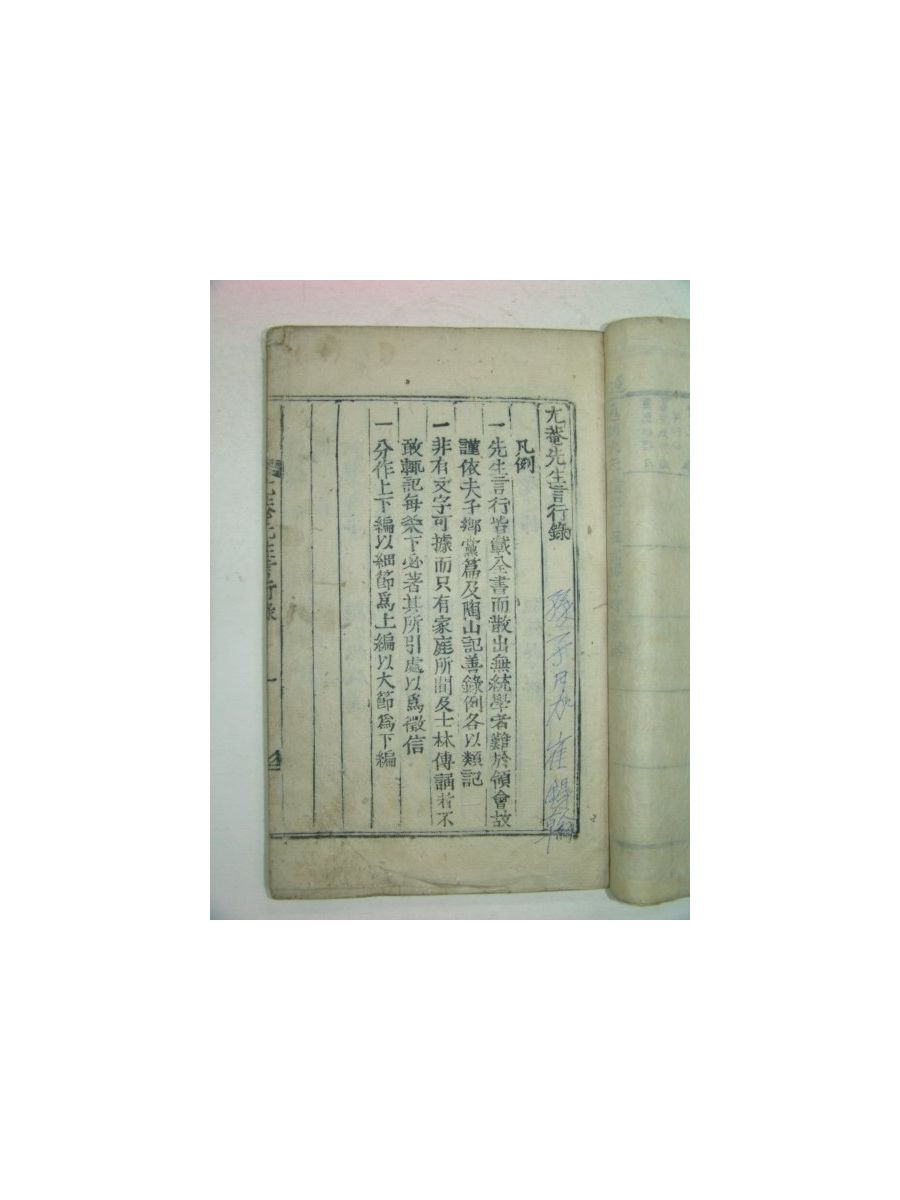 尤菴先生言行錄
凡例
一先生言行皆載全書而散出無統學者難於領會故
謹依夫子鄕黨篇及陶山記善錄例各以類記
一非有文字可據而只有家庭所聞及士林傳誦者不
敢輒記每条下必著其所引處以爲徵信
一分作上下編以細節爲上編以大節爲下編
尤菴先生言行錄 一